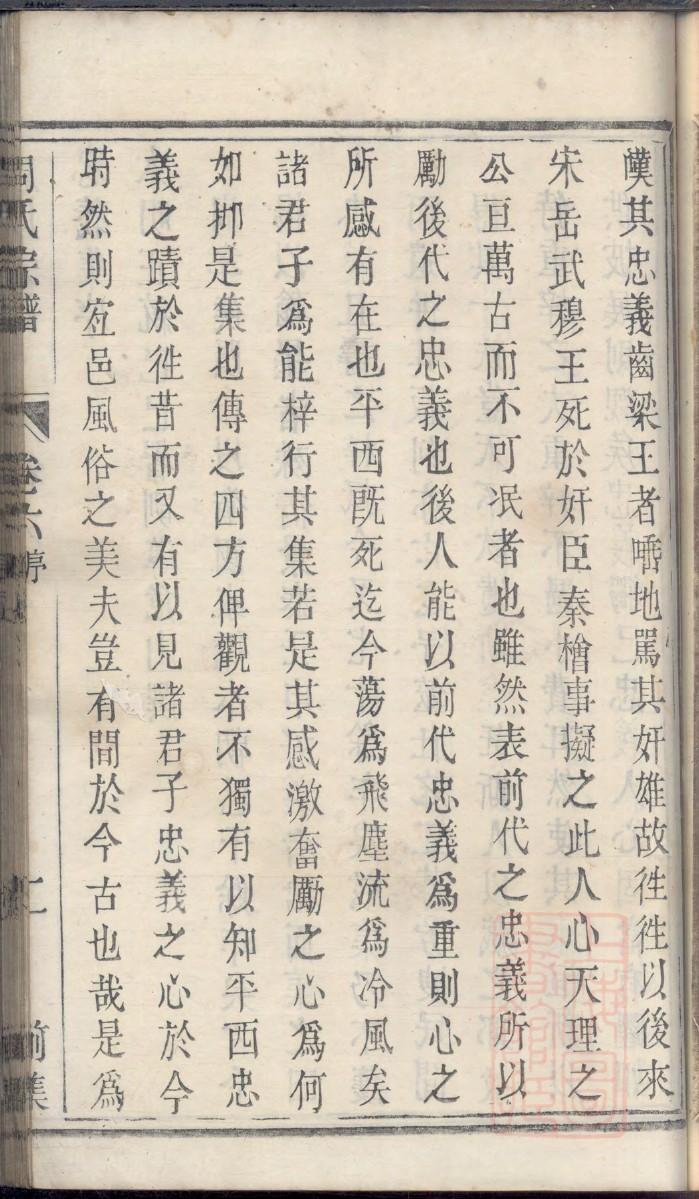 嘆其忠義齒梁王者唾地罵其奸雄故徃徃以後來
宋岳武穆王死於奸臣秦檜事擬之此人心天理之
公亘萬古而不可泯者也雖然表前代之忠義所以
勵後代之忠義也後人能以前代忠義爲重則心之
所感有在也平西旣死迄今蕩爲飛塵流爲冷風矣
諸君子爲能梓行其集若是其感激奮勵之心爲何
如抑是集也傳之四方俾觀者不獨有以知平西忠
義之蹟於徃昔而又有以見諸君子忠義之心於今
時然則宐邑風俗之美夫豈有間於今古也哉是爲
周氏宗譜
卷六
前集